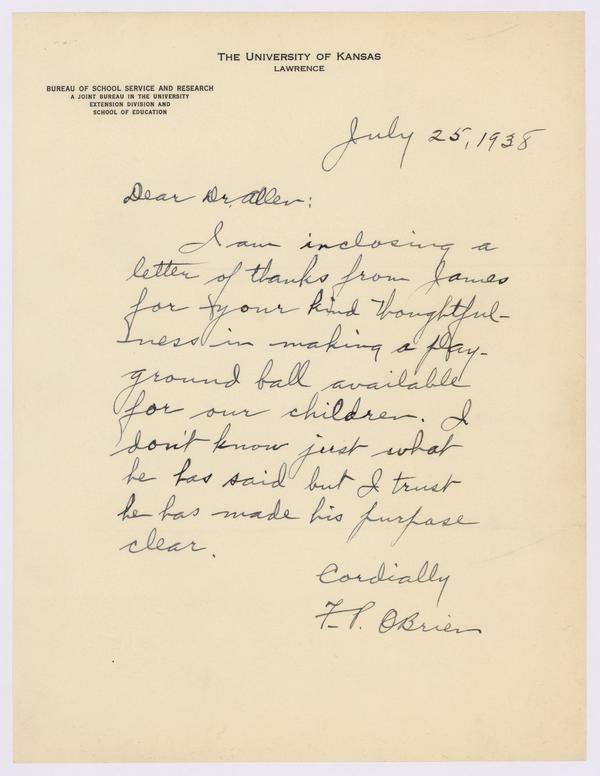 THE UNIVERSITY OF KANSAS
LAWRENCE
BUREAU OF SCHOOL SERVICE AND RESEARCH
A JOINT BUREAU IN THE UNIVERSITY
EXTENSION DIVISION AND
SCHOOL OF EDUCATION
July 25, 1938
Dear Dr. Allen:
I am inclosing a
letter of thanks from James
for your kind thoughtful-
ness in making a play-
ground ball available
for our children. I
don't know just what
he has said but I trust
he has made his purpose
clear.
Cordially
F. P. OBrien